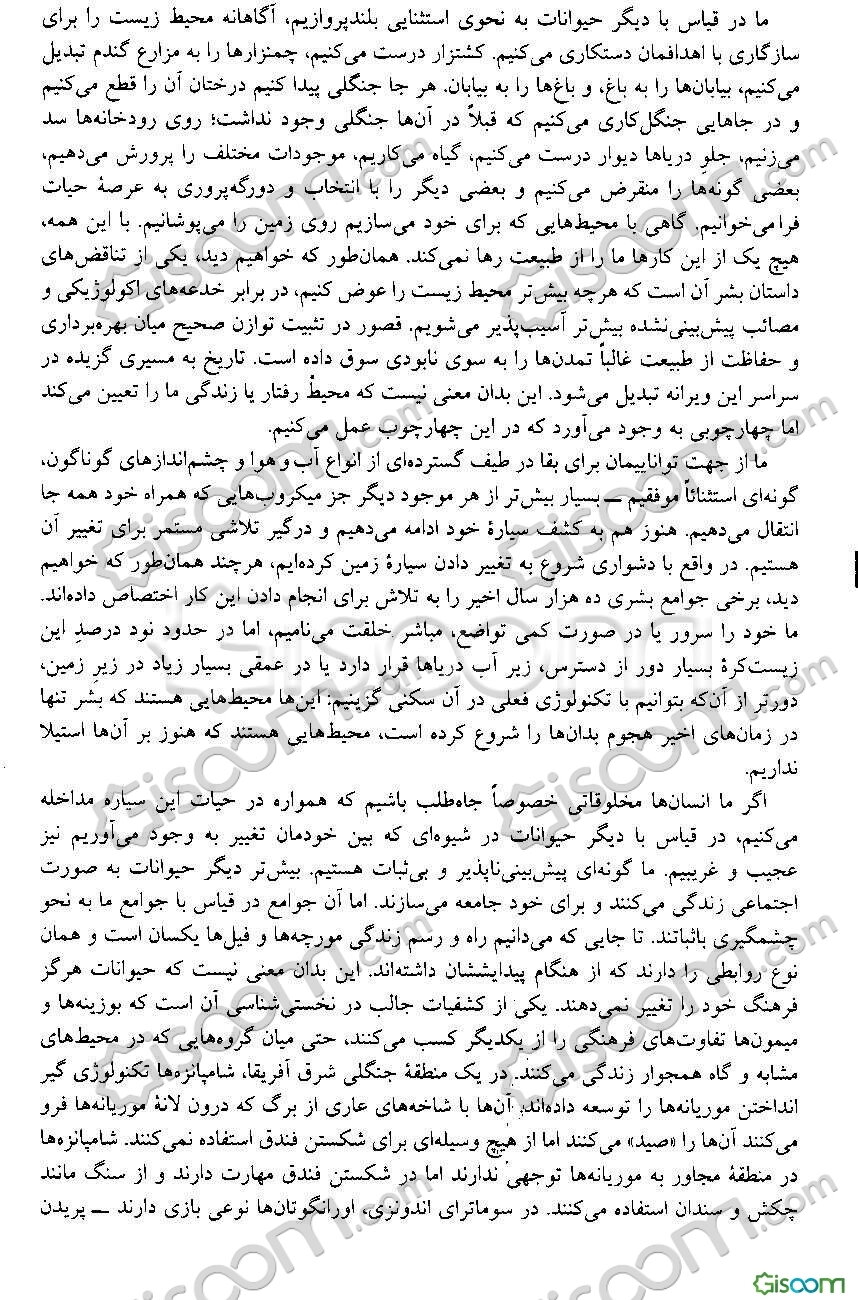 ما در قیاس با دیگر حیوانات به نحوی استثنایی بلندپروازیم، آگاهانه محیط زیست را برای
سازگاری با اهدافمان دستکاری می‌کنیم. کشتزار درست می‌کنیم، چمنزارها را به مزارع گندم تبدیل
می‌کنیم، بیابان‌ها را به باغ، و باغ‌ها را به بیابان. هر جا جنگلی پیدا کنیم درختان آن را قطع می‌کنیم
و در جاهایی جنگل‌کاری می‌کنیم که قبلاً در آن‌ها جنگلی وجود نداشت؛ روی رودخانه‌ها سد
می‌زنیم، جلوِ دریاها دیوار درست می‌کنیم، گیاه می‌کاریم، موجودات مختلف را پرورش می‌دهیم،
بعضی گونه‌ها را منقرض می‌کنیم و بعضی دیگر را با انتخاب و دورگه‌پروری به عرصهٔ حیات
فرا می‌خوانیم. گاهی با محیط‌هایی که برای خود می‌سازیم روی زمین را می‌پوشانیم. با این همه،
هیچ یک از این کارها ما را از طبیعت رها نمی‌کند. همان‌طور که خواهیم دید، یکی از تناقض‌های
داستان بشر آن است که هرچه بیش‌تر محیط زیست را عوض کنیم، در برابر خدعه‌های اکولوژیکی و
مصائب پیش‌بینی‌نشده بیش‌تر آسیب‌پذیر می‌شویم. قصور در تثبیت توازن صحیح میان بهره‌برداری
و حفاظت از طبیعت غالباً تمدن‌ها را به سوی نابودی سوق داده است. تاریخ به مسیری گزیده در
سراسر این ویرانه تبدیل می‌شود. این بدان معنی نیست که محیطْ رفتار یا زندگی ما را تعیین می‌کند
اما چهارچوبی به وجود می‌آورد که در این چهارچوب عمل می‌کنیم.
ما از جهت تواناییمان برای بقا در طیف گسترده‌ای از انواع آب و هوا و چشم‌اندازهای گوناگون،
گونه‌ای استثنائاً موفقیم ــ بسیار بیش‌تر از هر موجود دیگر جز میکروب‌هایی که همراه خود همه جا
انتقال می‌دهیم. هنوز هم به کشف سیارهٔ خود ادامه می‌دهیم و درگیر تلاشی مستمر برای تغییر آن
هستیم. در واقع با دشواری شروع به تغییر دادن سیارهٔ زمین کرده‌ایم، هرچند همان‌طور که خواهیم
دید، برخی جوامع بشری ده هزار سال اخیر را به تلاش برای انجام دادن این کار اختصاص داده‌اند.
ما خود را سرور یا در صورت کمی تواضع، مباشر خلقت می‌نامیم، اما در حدود نود درصدِ این
زیست‌کرهٔ بسیار دور از دسترس، زیر آب دریاها قرار دارد یا در عمقی بسیار زیاد در زیرِ زمین،
دورتر از آن‌که بتوانیم با تکنولوژی فعلی در آن سکنی گزینیم: این‌ها محیط‌هایی هستند که بشر تنها
در زمان‌های اخیر هجوم بدان‌ها را شروع کرده است، محیط‌هایی هستند که هنوز بر آن‌ها استیلا
نداریم.
اگر ما انسان‌ها مخلوقاتی خصوصاً جاه‌طلب باشیم که همواره در حیات این سیاره مداخله
می‌کنیم، در قیاس با دیگر حیوانات در شیوه‌ای که بین خودمان تغییر به وجود می‌آوریم نیز
عجیب و غریبیم. ما گونه‌ای پیش‌بینی‌ناپذیر و بی‌ثبات هستیم. بیش‌تر دیگر حیوانات به صورت
اجتماعی زندگی می‌کنند و برای خود جامعه می‌سازند. اما آن جوامع در قیاس با جوامع ما به نحو
چشمگیری باثباتند. تا جایی که می‌دانیم راه و رسم زندگی مورچه‌ها و فیل‌ها یکسان است و همان
نوع روابطی را دارند که از هنگام پیدایششان داشته‌اند. این بدان معنی نیست که حیوانات هرگز
فرهنگ خود را تغییر نمی‌دهند. یکی از کشفیات جالب در نخستی‌شناسی آن است که بوزینه‌ها و
میمون‌ها تفاوت‌های فرهنگی را از یکدیگر کسب می‌کنند، حتی میان گروه‌هایی که در محیط‌های
مشابه و گاه همجوار زندگی می‌کنند. در یک منطقهٔ جنگلی شرق آفریقا، شامپانزه‌ها تکنولوژی گیر
انداختن موریانه‌ها را توسعه داده‌اند. آن‌ها با شاخه‌های عاری از برگ که درون لانهٔ موریانه‌ها فرو
می‌کنند آن‌ها را «صید» می‌کنند اما از هیچ وسیله‌ای برای شکستن فندق استفاده نمی‌کنند. شامپانزه‌ها
در منطقهٔ مجاور به موریانه‌ها توجهی ندارند اما در شکستن فندق مهارت دارند و از سنگ مانند
چکش و سندان استفاده می‌کنند. در سوماترای اندونزی، اورانگوتان‌ها نوعی بازی دارند ــ پریدن
Gisoom.com
Gisoom